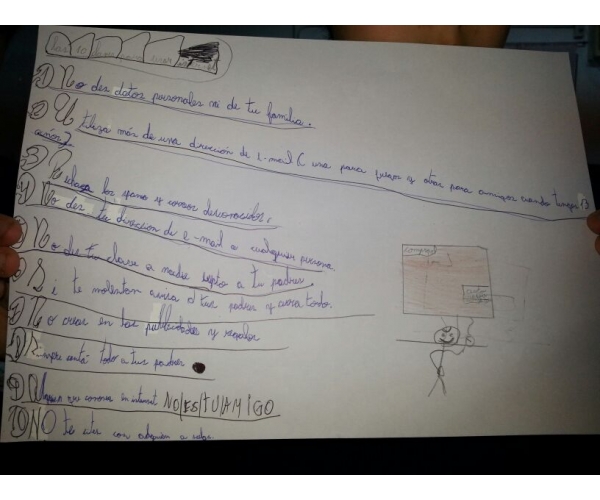 los 10 para usar
1) No des datos personales ni de tu familia.
2) Utiliza más de una dirección de e-mail (una para juegos y otra para amigos cuando tengas 13
años)
3) los spams y correos desconocidos.
4) No des tu dirección de e-mail a cualquier persona
No des tu clave a nadie septo a tu padres
Si te molestan avisa a tus padres y avisa todo.
No creer en las publicidades y regalos
contá todo a tus padres
9) que conoces en internet NO/ES/TU/AMIGO
10) NO te con a
compra